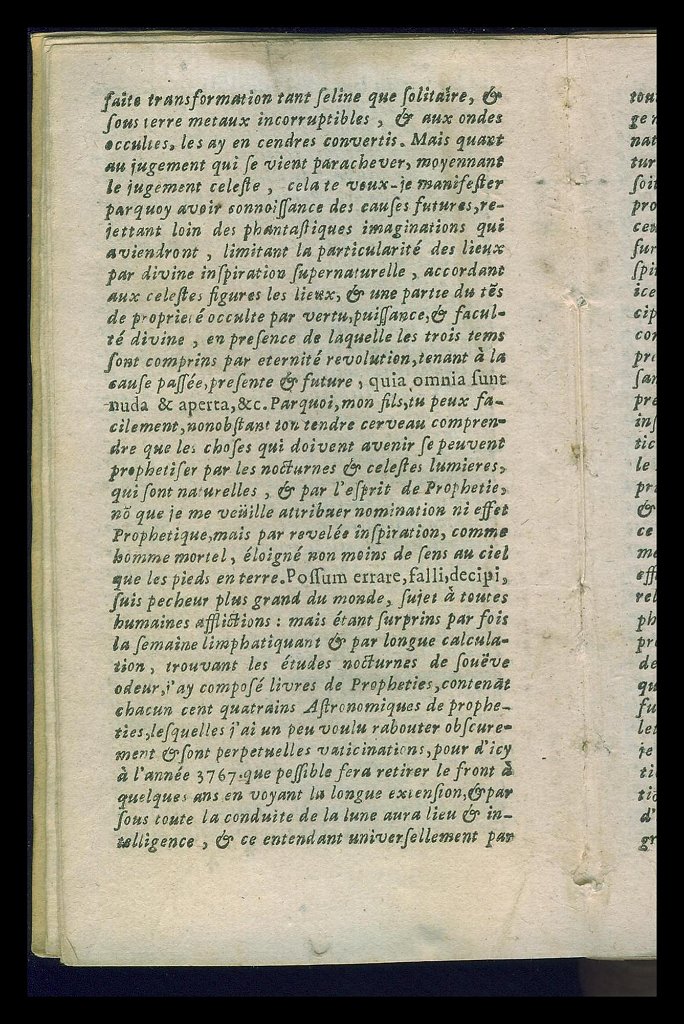 faite transformation tant ſeline que ſolitaire, &
ſous terre metaux incorruptibles, & aux ondes
occultes, les ay en cendres convertis. Mais quant
au jugement qui ſe vient parachever, moyennant
le jugement celeſte, cela te veux-je manifeſter
parquoy avoir connoiſſance des cauſes futures, re-
jettant loin des phantaſtiques imaginations qui
aviendront, limitant la particularité des lieux
par divine inſpiration ſupernaturelle, accordant
aux celeſtes figures les lieux, & une partie du tẽs
de proprieté occulte par vertu, puiſſance, & facul-
té divine, en preſence de laquelle les trois tems
ſont comprins par eternité revolution, tenant à la
cauſe paſſée, preſente & future, quia omnia ſunt
nuda & aperta, &c. Parquoi, mon fils, tu peux fa-
cilement, nonobſtant ton tendre cerveau compren-
dre que les choſes qui doivent avenir ſe peuvent
prophetiſer par les nocturnes & celeſtes lumieres,
qui ſont naturelles, & par l'eſprit de Prophetie,
nõ que je me veüille attribuer nomination ni effet
Prophetique, mais par revelée inſpiration, comme
homme mortel, éloigné non moins de ſens au ciel
que les pieds en terre. Poſſum errare, falli, decipi,
ſuis pecheur plus grand du monde, ſujet à toutes
humaines afflictions : mais étant ſurprins par fois
la ſemaine limphatiquant & par longue calcula-
tion, trouvant les études nocturnes de ſouëve
odeur, j'ay compoſé livres de Propheties, contenãt
chacun cent quatrains Aſtronomiques de prophe-
ties, leſquelles j'ai un peu voulu rabouter obſcure-
ment & ſont perpetuelles vaticinations, pour d'icy
à l'année 3767. que poſſible fera retirer le front à
quelques ans en voyant la longue extenſion, & par
ſous toute la conduite de la lune aura lieu & in-
telligence, & ce entendant univerſellement par
tou
ge
nat
tur
ſoit
pro
ceu
ſur
ſpi
ice
cip
con
pre
ſan
pre
inſ
tic
le
pri
&
ce
me
eff
rel
ph
pr
de
qu
fu
let
je
ti
tio
d'
gr